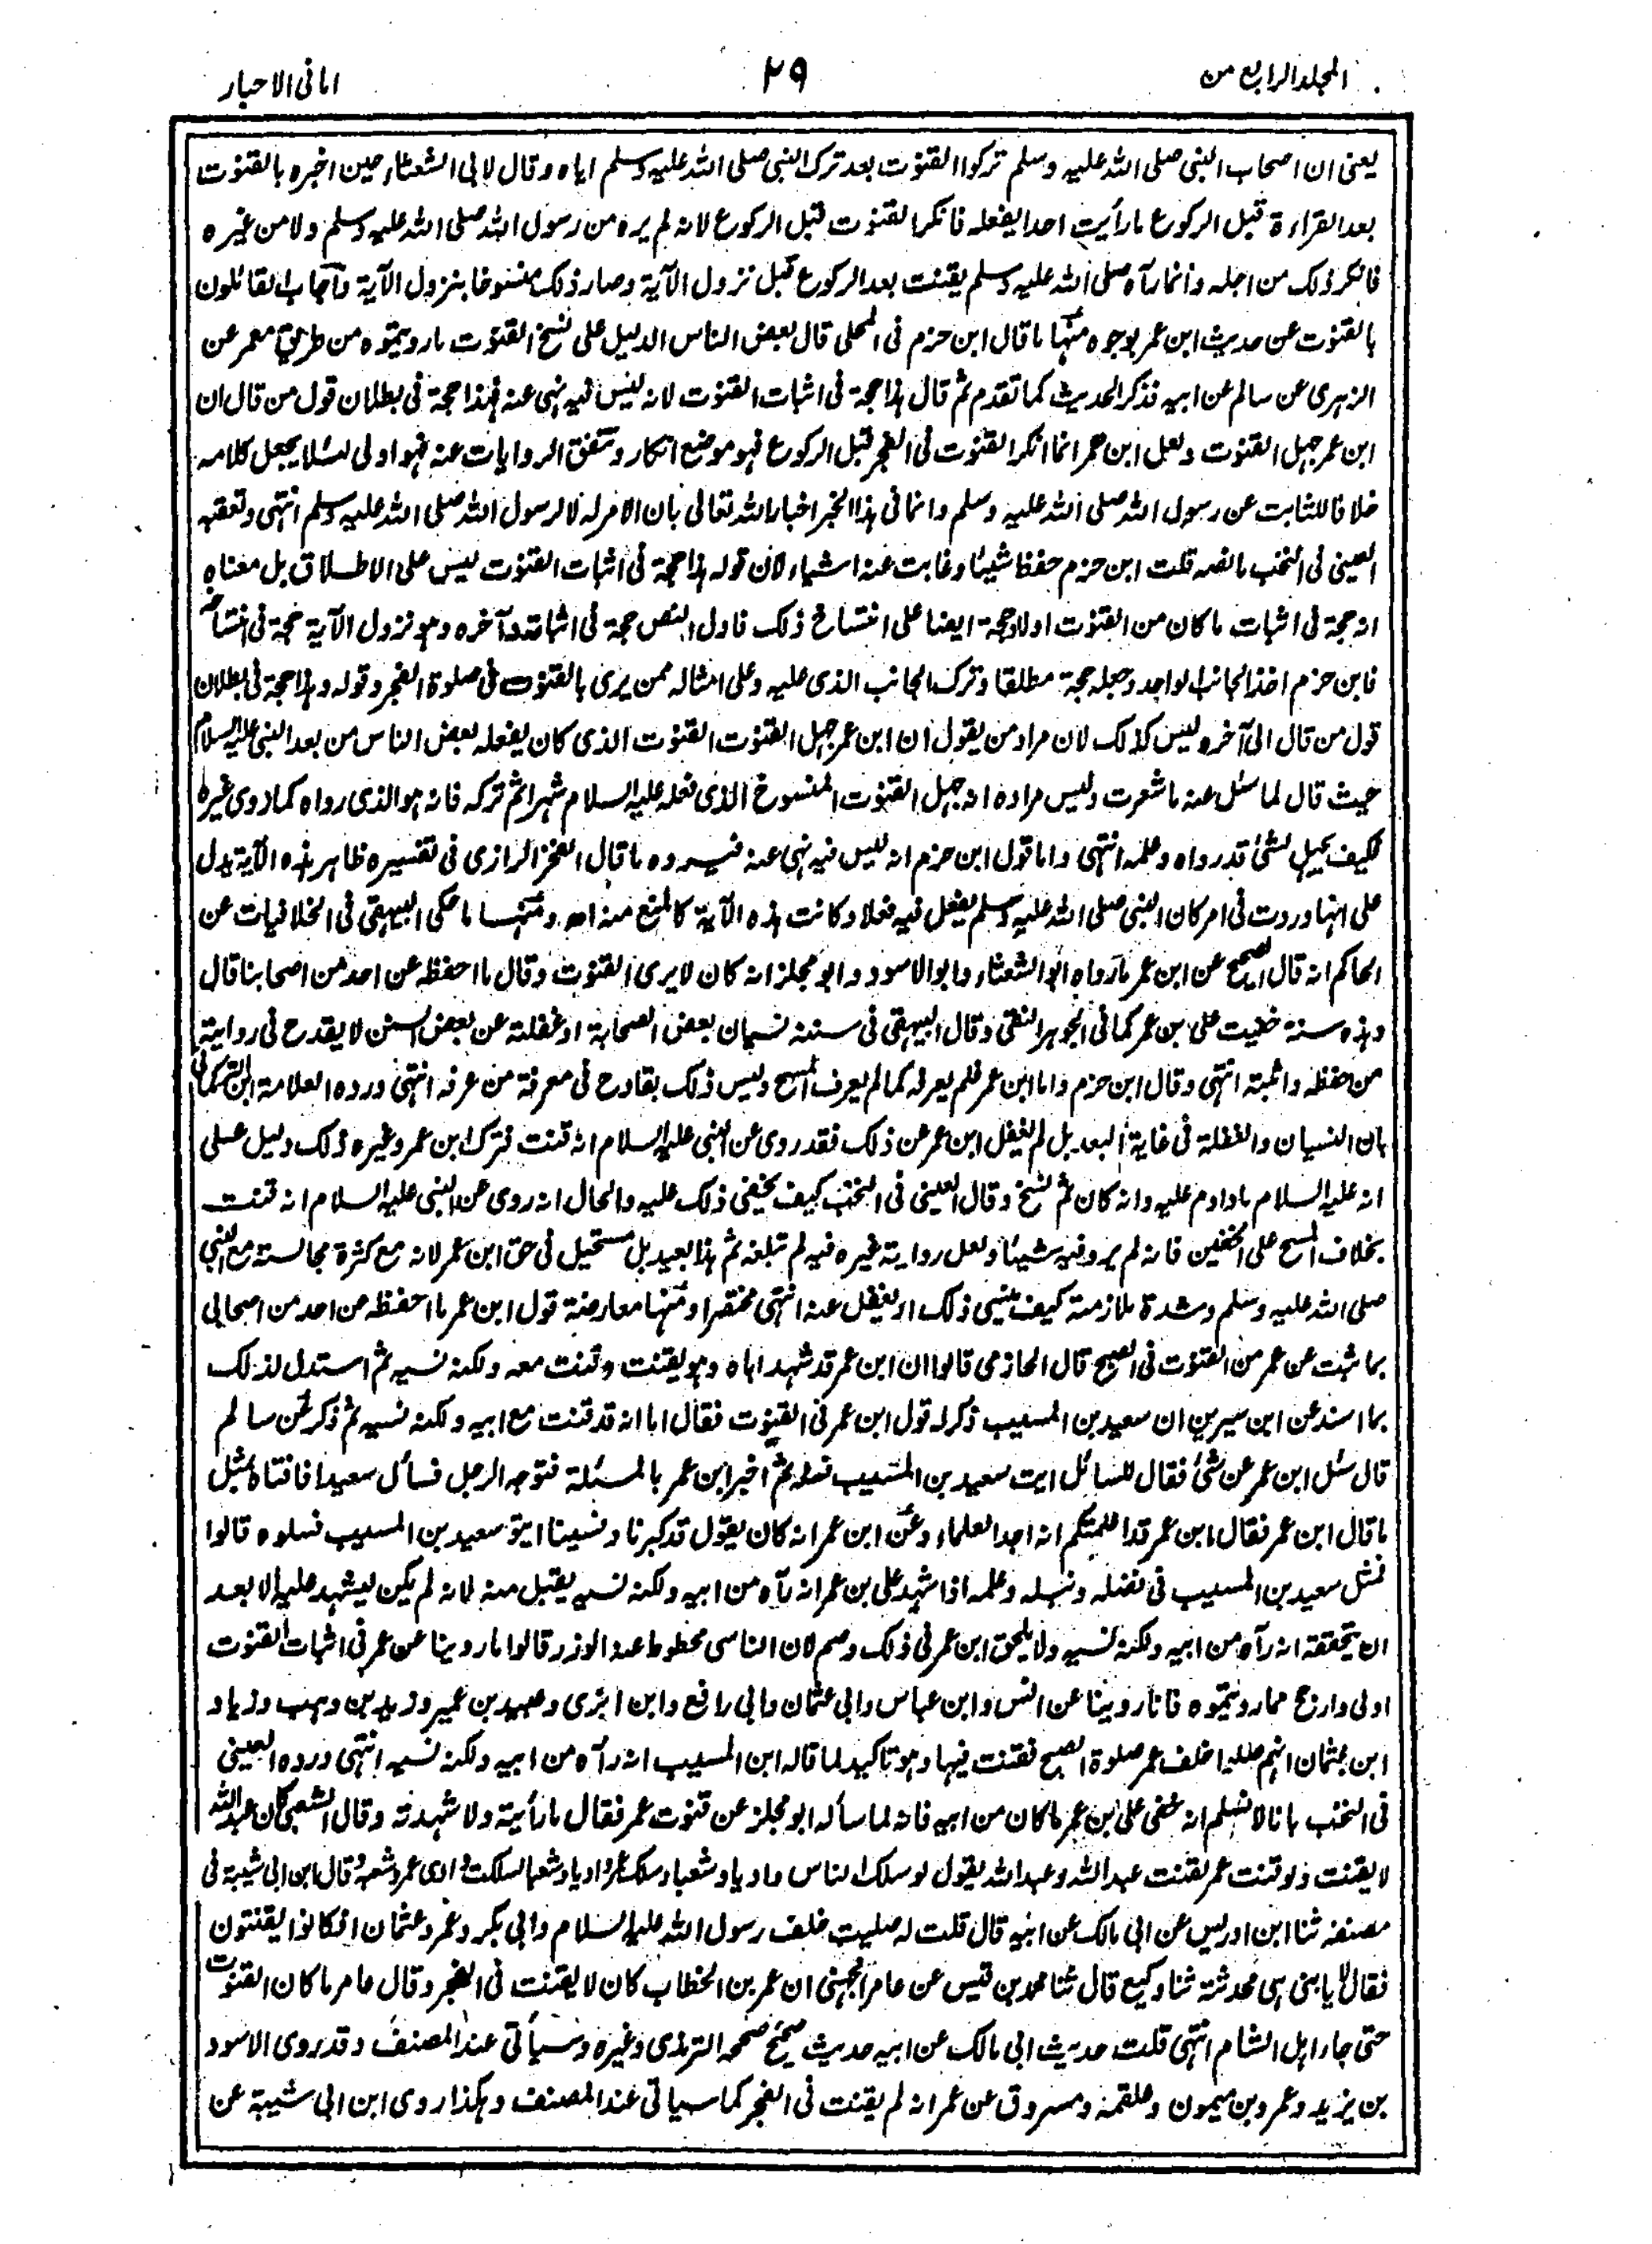 المجلد الرابع من
٢٩
امانى الاحبار
يعنى ان اصحاب النبى صلى الله عليه وسلم تركوا القنوت بعد ترك النبى صلى الله عليه وسلم اياه وقال لابى الشعثاء حين اخبره بالقنوت
بعد القراءة قبل الركوع ما رأيت احدا يفعله فانكر القنوت قبل الركوع لانه لم يره من رسول الله صلى الله عليه وسلم ولا من غيره
فانكر ذلك من اجله وانما رآه صلى الله عليه وسلم يقنت بعد الركوع قبل نزول الآية وصار ذلك منسوخا بنزول الآية وآجاب القائلون
بالقنوت عن حديث ابن عمر بوجوه منها ما قال ابن حزم فى المحلى قال بعض الناس الدليل على نسخ القنوت ما رويتموه من طريق معمر عن
الزهرى عن سالم عن ابيه فذكر الحديث كما تقدم ثم قال هذا حجة فى اثبات القنوت لانه ليس فيه نهى عنه فهذا حجة فى بطلان قول من قال ان
ابن عمر جهل القنوت ولعل ابن عمر انما انكر القنوت فى الفجر قبل الركوع فهو موضع انكار وتتفق الروايات عنه فهو اولى لئلا يجعل كلامه
خلافا للثابت عن رسول الله صلى الله عليه وسلم وانما فى هذا الخبر اخبار الله تعالى بان الامر له لا لرسول الله صلى الله عليه وسلم انتهى وتعقبه
العينى فى النخب ما نصه قلت ابن حزم حفظ شيئا وغابت عنه اشياء لان قوله هذا حجة فى اثبات القنوت ليس على الاطلاق بل معناه
انه حجة فى اثبات ما كان من القنوت اولا وحجة ايضا على انتساخ ذلك فاول النص حجة فى اثباته وآخره وهو نزول الآية حجة فى انتساخه
فابن حزم اخذ الجانب الواحد وجعله حجة مطلقا وترك الجانب الذى عليه وعلى امثاله ممن يرى بالقنوت فى صلوة الفجر وقوله وهذا حجة فى بطلان
قول من قال الى آخره ليس كذلك لان مراد من يقول ان ابن عمر جهل القنوت القنوت الذى كان يفعله بعض الناس من بعد النبى عليه السلام
حيث قال لما سئل عنه ما شعرت وليس مراده انه جهل القنوت المنسوخ الذى فعله عليه السلام شهرا ثم تركه فانه هو الذى رواه كما روى غيره
فكيف يجهل لشئ قد رواه وعلمه انتهى واما قول ابن حزم انه ليس فيه نهى عنه فيرده ما قال الفخر الرازى فى تفسيره ظاهر هذه الآية يدل
على انها وردت فى امر كان النبى صلى الله عليه وسلم يفعل فيه فعلا وكانت هذه الآية كالمنع منه اه ومنها ما حكى البيهقى فى الخلافيات عن
الحاكم انه قال الصحيح عن ابن عمر ما رواه ابو الشعثاء وابو الاسود وابو مجلز انه كان لا يرى القنوت وقال ما احفظه عن احد من اصحابنا قال
وهذه سنة خفيت على ابن عمر كما فى الجوهر النقى وقال البيهقى فى سننه نسيان بعض الصحابة او غفلته عن بعض السنن لا يقدح فى رواية
من حفظه واثبته انتهى وقال ابن حزم واما ابن عمر فلم يعرفه كما لم يعرف المسح وليس ذلك بقادح فى معرفة من عرفه انتهى ورده العلامة ابن التركمانى
بان النسيان والغفلة فى غاية البعد بل لم يغفل ابن عمر عن ذلك فقد روى عن النبى عليه السلام انه قنت فترك ابن عمر وغيره ذلك دليل على
انه عليه السلام ما داوم عليه وانه كان ثم نسخ وقال العينى فى النخب كيف يخفى ذلك عليه والحال انه روى عن النبى عليه السلام انه قنت
بخلاف المسح على الخفين فانه لم يرو فيه شيئا ولعل رواية غيره فيه لم تبلغه ثم هذا بعيد بل مستحيل فى حق ابن عمر لانه مع كثرة مجالسته مع النبى
صلى الله عليه وسلم وشدة ملازمته كيف ينسى ذلك او يغفل عنه انتهى مختصرا ومنها معارضة قول ابن عمر ما احفظه من احد من اصحابى
بما ثبت عن عمر من القنوت فى الصبح قال الحازمى قالوا ان ابن عمر قد شهد اباه وهو يقنت وقنت معه ولكنه نسيه ثم استدل لذلك
بما اسند عن ابن سيرين ان سعيد بن المسيب ذكر له قول ابن عمر فى القنوت فقال اما انه قد قنت مع ابيه ولكنه نسيه ثم ذكر عن سالم
قال سئل ابن عمر عن شئ فقال للسائل ايت سعيد بن المسيب فسله ثم اخبر ابن عمر بالمسئلة فتوجه الرجل فسأل سعيدا فافتاه بمثل
ما قال ابن عمر فقال ابن عمر قد اعلمتكم انه احد العلماء وعن ابن عمر انه كان يقول قد كبرنا ونسينا ايتو سعيد بن المسيب فسلوه قالوا
فمثل سعيد بن المسيب فى فضله ونبله وعلمه اذا شهد على بن عمر انه رآه من ابيه ولكنه نسيه يقبل منه لانه لم يكن ليشهد عليه الا بعد
ان يتحققه انه رآه من ابيه ولكنه نسيه ولا يلحق ابن عمر فى ذلك وصم لان الناسى محطوط عنه الوزر قالوا ما روينا عن عمر فى اثبات القنوت
اولى وارجح مما رويتموه فانا روينا عن انس وابن عباس وابى عثمان وابى رافع وابن ابزى وعبيد بن عمير وزيد بن وهب وزياد
ابن عثمان انهم صلوا خلف عمر صلوة الصبح فقنت فيها وهو تاكيد لما قاله ابن المسيب انه رآه من ابيه ولكنه نسيه انتهى ورده العينى
فى النخب بانا لا نسلم انه خفى على ابن عمر ما كان من ابيه فانه لما سأله ابو مجلز عن قنوت عمر فقال ما رأيته ولا شهدته وقال الشعبى كان عبد الله
لا يقنت ولو قنت عمر لقنت عبد الله وعبد الله يقول لو سلك الناس واديا وشعبا وسلك عمر واديا وشعبا لسلكت وادى عمر وشعبه وقال ابن ابى شيبة فى
مصنفه ثنا ابن ادريس عن ابى مالك عن ابيه قال قلت له صليت خلف رسول الله عليه السلام وابى بكر وعمر وعثمان افكانوا يقنتون
فقال لا يا بنى هى محدثة ثنا وكيع قال ثنا محمد بن قيس عن عامر الجهنى ان عمر بن الخطاب كان لا يقنت فى الفجر وقال عامر ما كان القنوت
حتى جاء اهل الشام انتهى قلت حديث ابى مالك عن ابيه حديث صحيح صححه الترمذى وغيره وسيأتى عند المصنف وقد روى الاسود
بن يزيد وعمرو بن ميمون وعلقمة ومسروق عن عمر انه لم يقنت فى الفجر كما سياتى عند المصنف وهكذا روى ابن ابى شيبة عن